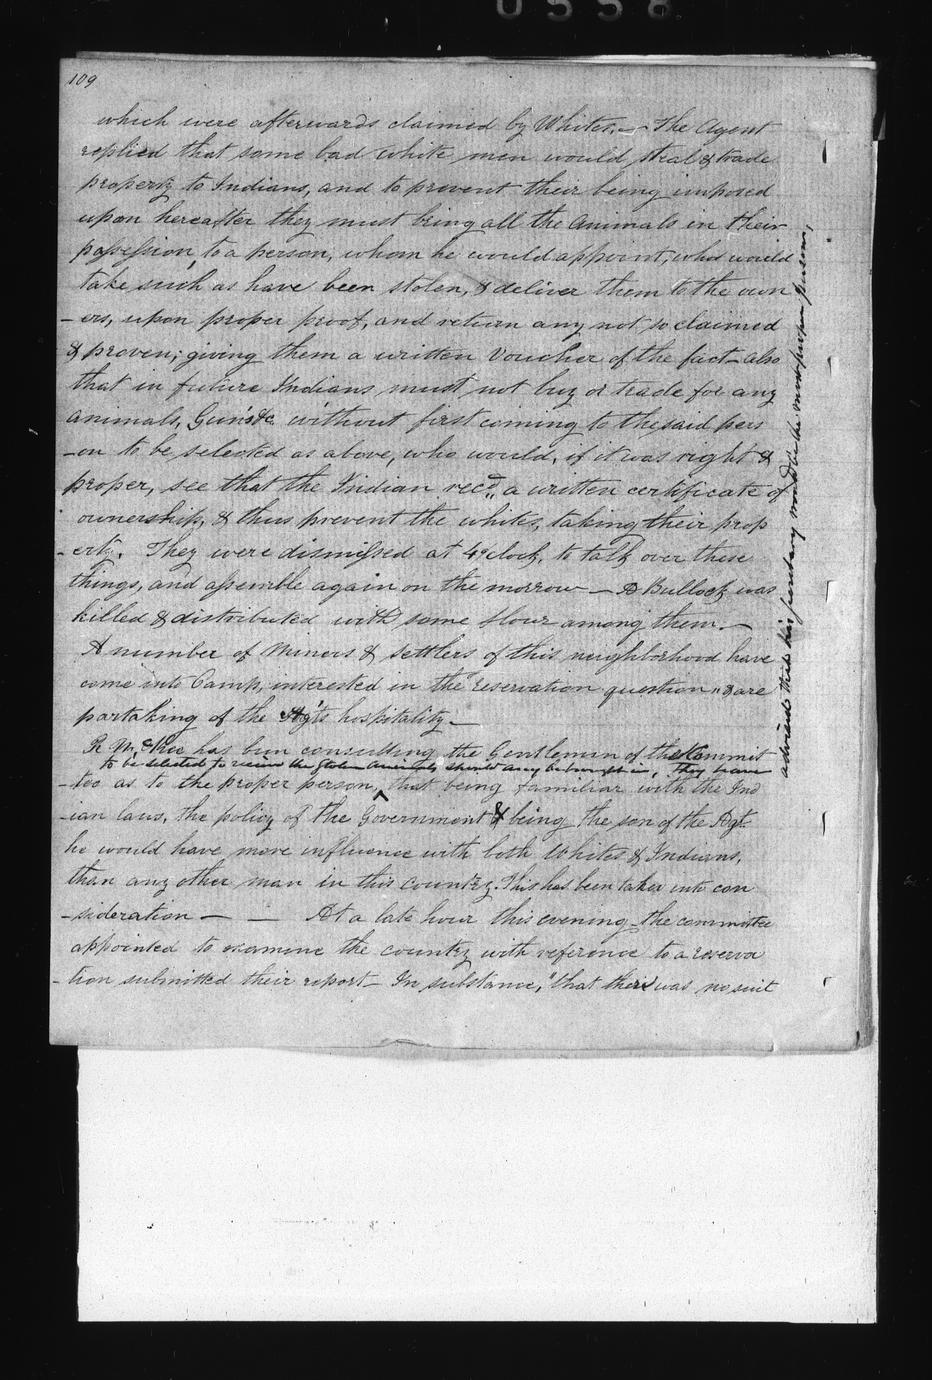 0558
109
which were afterwards claimed by Whites. — The Agent
replied that some bad white men would steal & trade
property to Indians, and to prevent their being imposed
upon hereafter they must bring all the animals in their
possession, to a person, whom he would appoint, who would
take such as have been stolen, & deliver them to the own
-ers, upon proper proof, and return any not so claimed
& proven; giving them a written Voucher of the fact — also
that in future Indians must not buy or trade for any
animals, Guns &c without first coming to the said pers
-on to be selected as above, who would, if it was right &
proper, see that the Indian recd. a written certificate of
ownership, & thus prevent the whites, taking their prop
-erty. They were dismissed at 4 oclock, to talk over these
things, and assemble again on the morrow — A Bullock was
killed & distributed with some flour among them. —
A number of Miners & settlers of this neighborhood have
come into Camp, interested in the "reservation question" & are
partaking of the Agt's hospitality —
R McKee has been consulting the Gentlemen of the Commit
to be selected to receive the stolen animals, should any be brought in, They have
-tee as to the proper person, ^ that being familiar with the Ind
-ian laws, the policy of the Government & being the son of the Agt.
he would have more influence with both Whites & Indians,
than any other man in this country. This has been taken into con
-sideration — — At a late hour this evening the committee
appointed to examine the country with reference to a reserva
-tion submitted their report — In substance, "that there was no suit
advised that his secretary would be the most proper person,